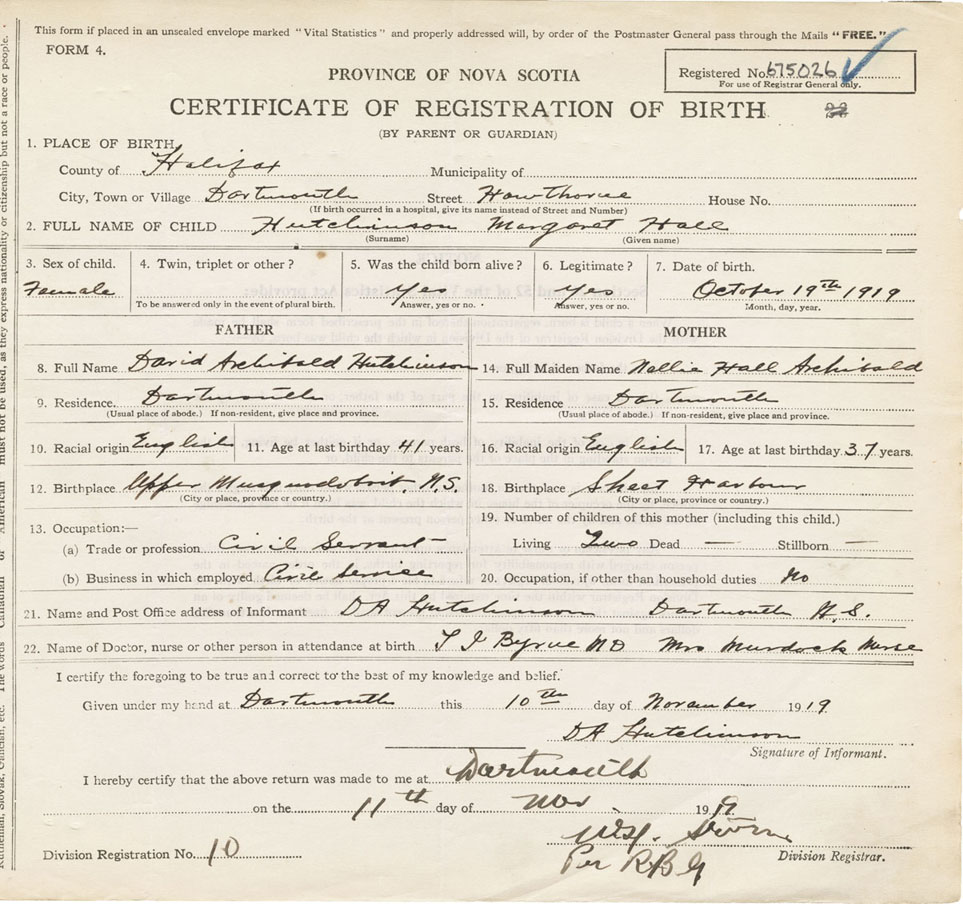 This form if placed in an unsealed envelope marked "Vital Statistics" and properly addressed will, by order of the Postmaster General pass through the Mails "FREE."
FORM 4.
Registered No. 675026
For use of Registrar General only.
PROVINCE OF NOVA SCOTIA
CERTIFICATE OF REGISTRATION OF BIRTH
(BY PARENT OR GUARDIAN)
1. PLACE OF BIRTH,
County of Halifax Municipality of
City, Town or Village Dartmouth Street Hawthorne House No.
(If birth occurred in a hospital, give its name instead of Street and Number)
2. FULL NAME OF CHILD Hutchinson Margaret Hall
(Surname) (Given name)
3. Sex of child. 4. Twin, triplet or other? 5. Was the child born alive? 6. Legitimate? 7. Date of birth.
Female Yes Yes October 19th 1919
To be answered only in the event of plural birth. Answer, yes or no. Answer, yes or no. Month, day, year.
FATHER MOTHER
8. Full Name David Archibald Hutchinson 14. Full Maiden Name Nellie Hall Archibald
9. Residence. Dartmouth 15. Residence Dartmouth
(Usual place of abode.) If non-resident, give place and province. (Usual place of abode.) If non-resident, give place and province.
10. Racial origin English 11. Age at last birthday 41 years. 16. Racial origin English 17. Age at last birthday 37 years.
12. Birthplace Upper Musquodoboit, N.S. 18. Birthplace Sheet Harbour
(City or place, province or country.) (City or place, province or country.)
13. Occupation:— 19. Number of children of this mother (including this child.)
(a) Trade or profession Civil Servant Living Two Dead — Stillborn —
(b) Business in which employed Civil Service 20. Occupation, if other than household duties No
21. Name and Post Office address of Informant DA Hutchinson Dartmouth N.S.
22. Name of Doctor, nurse or other person in attendance at birth T J Byrne MD Mrs Murdock Nurse
I certify the foregoing to be true and correct to the best of my knowledge and belief.
Given under my hand at Dartmouth this 10th day of November 1919
DA Hutchinson
Signature of Informant.
I hereby certify that the above return was made to me at Dartmouth
on the 11th day of Nov. 1919
Per RBG
Division Registration No. 10 Division Registrar.
must not be used, as they express nationality or citizenship but not a race or people.